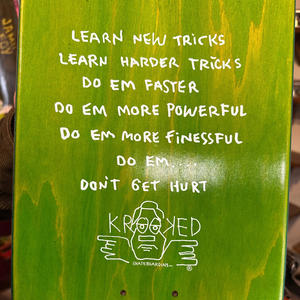 LEARN NEW TRICKS
LEARN HARDER TRICKS
DO EM FASTER
DO EM MORE POWERFUL
DO EM MORE FINESSFUL
DO EM....
DON'T GET HURT
KROOKED
SKATEBOARDING
®